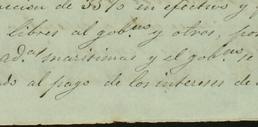 ucción de 55% en efectivo y
libres al gobno y otros, por
ad.s maritimas y el gobno se
do al pago de los intereses de